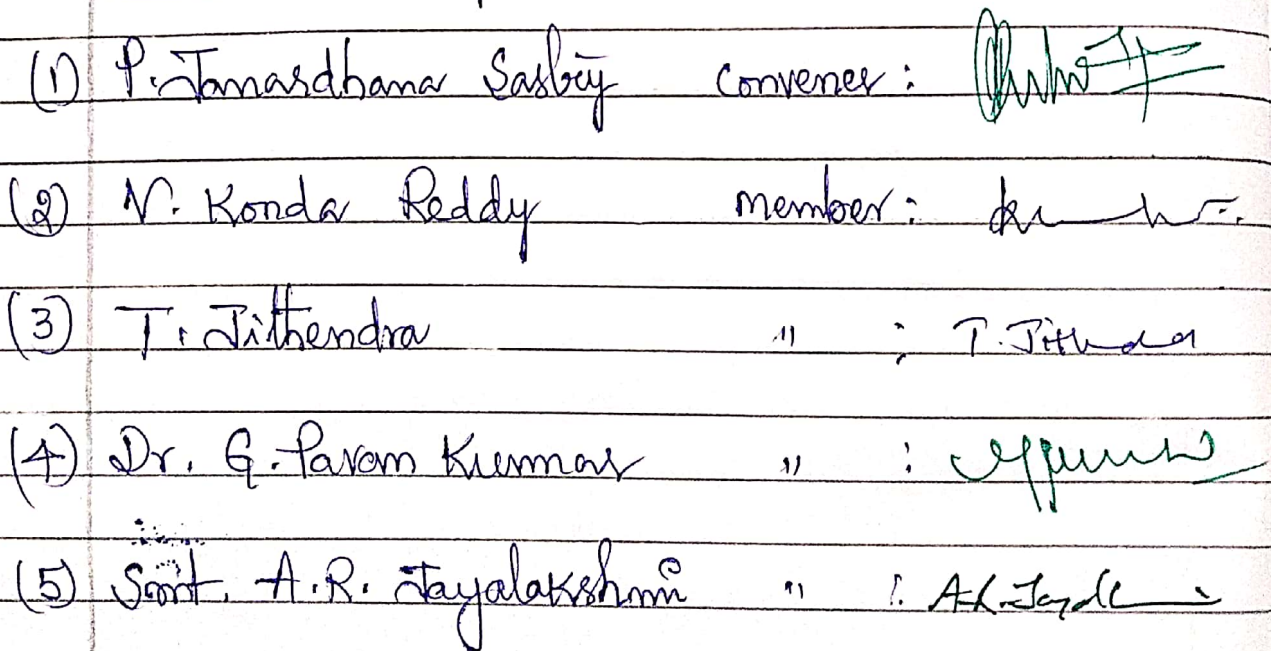 (1) P. Janardhana Sastry Convener :
(2) N. Konda Reddy member :
(3) T. Jithendra " : T. Jithendra
(4) Dr. G. Pavan Kumar " :
(5) Smt. A.R. Jayalakshmi " :